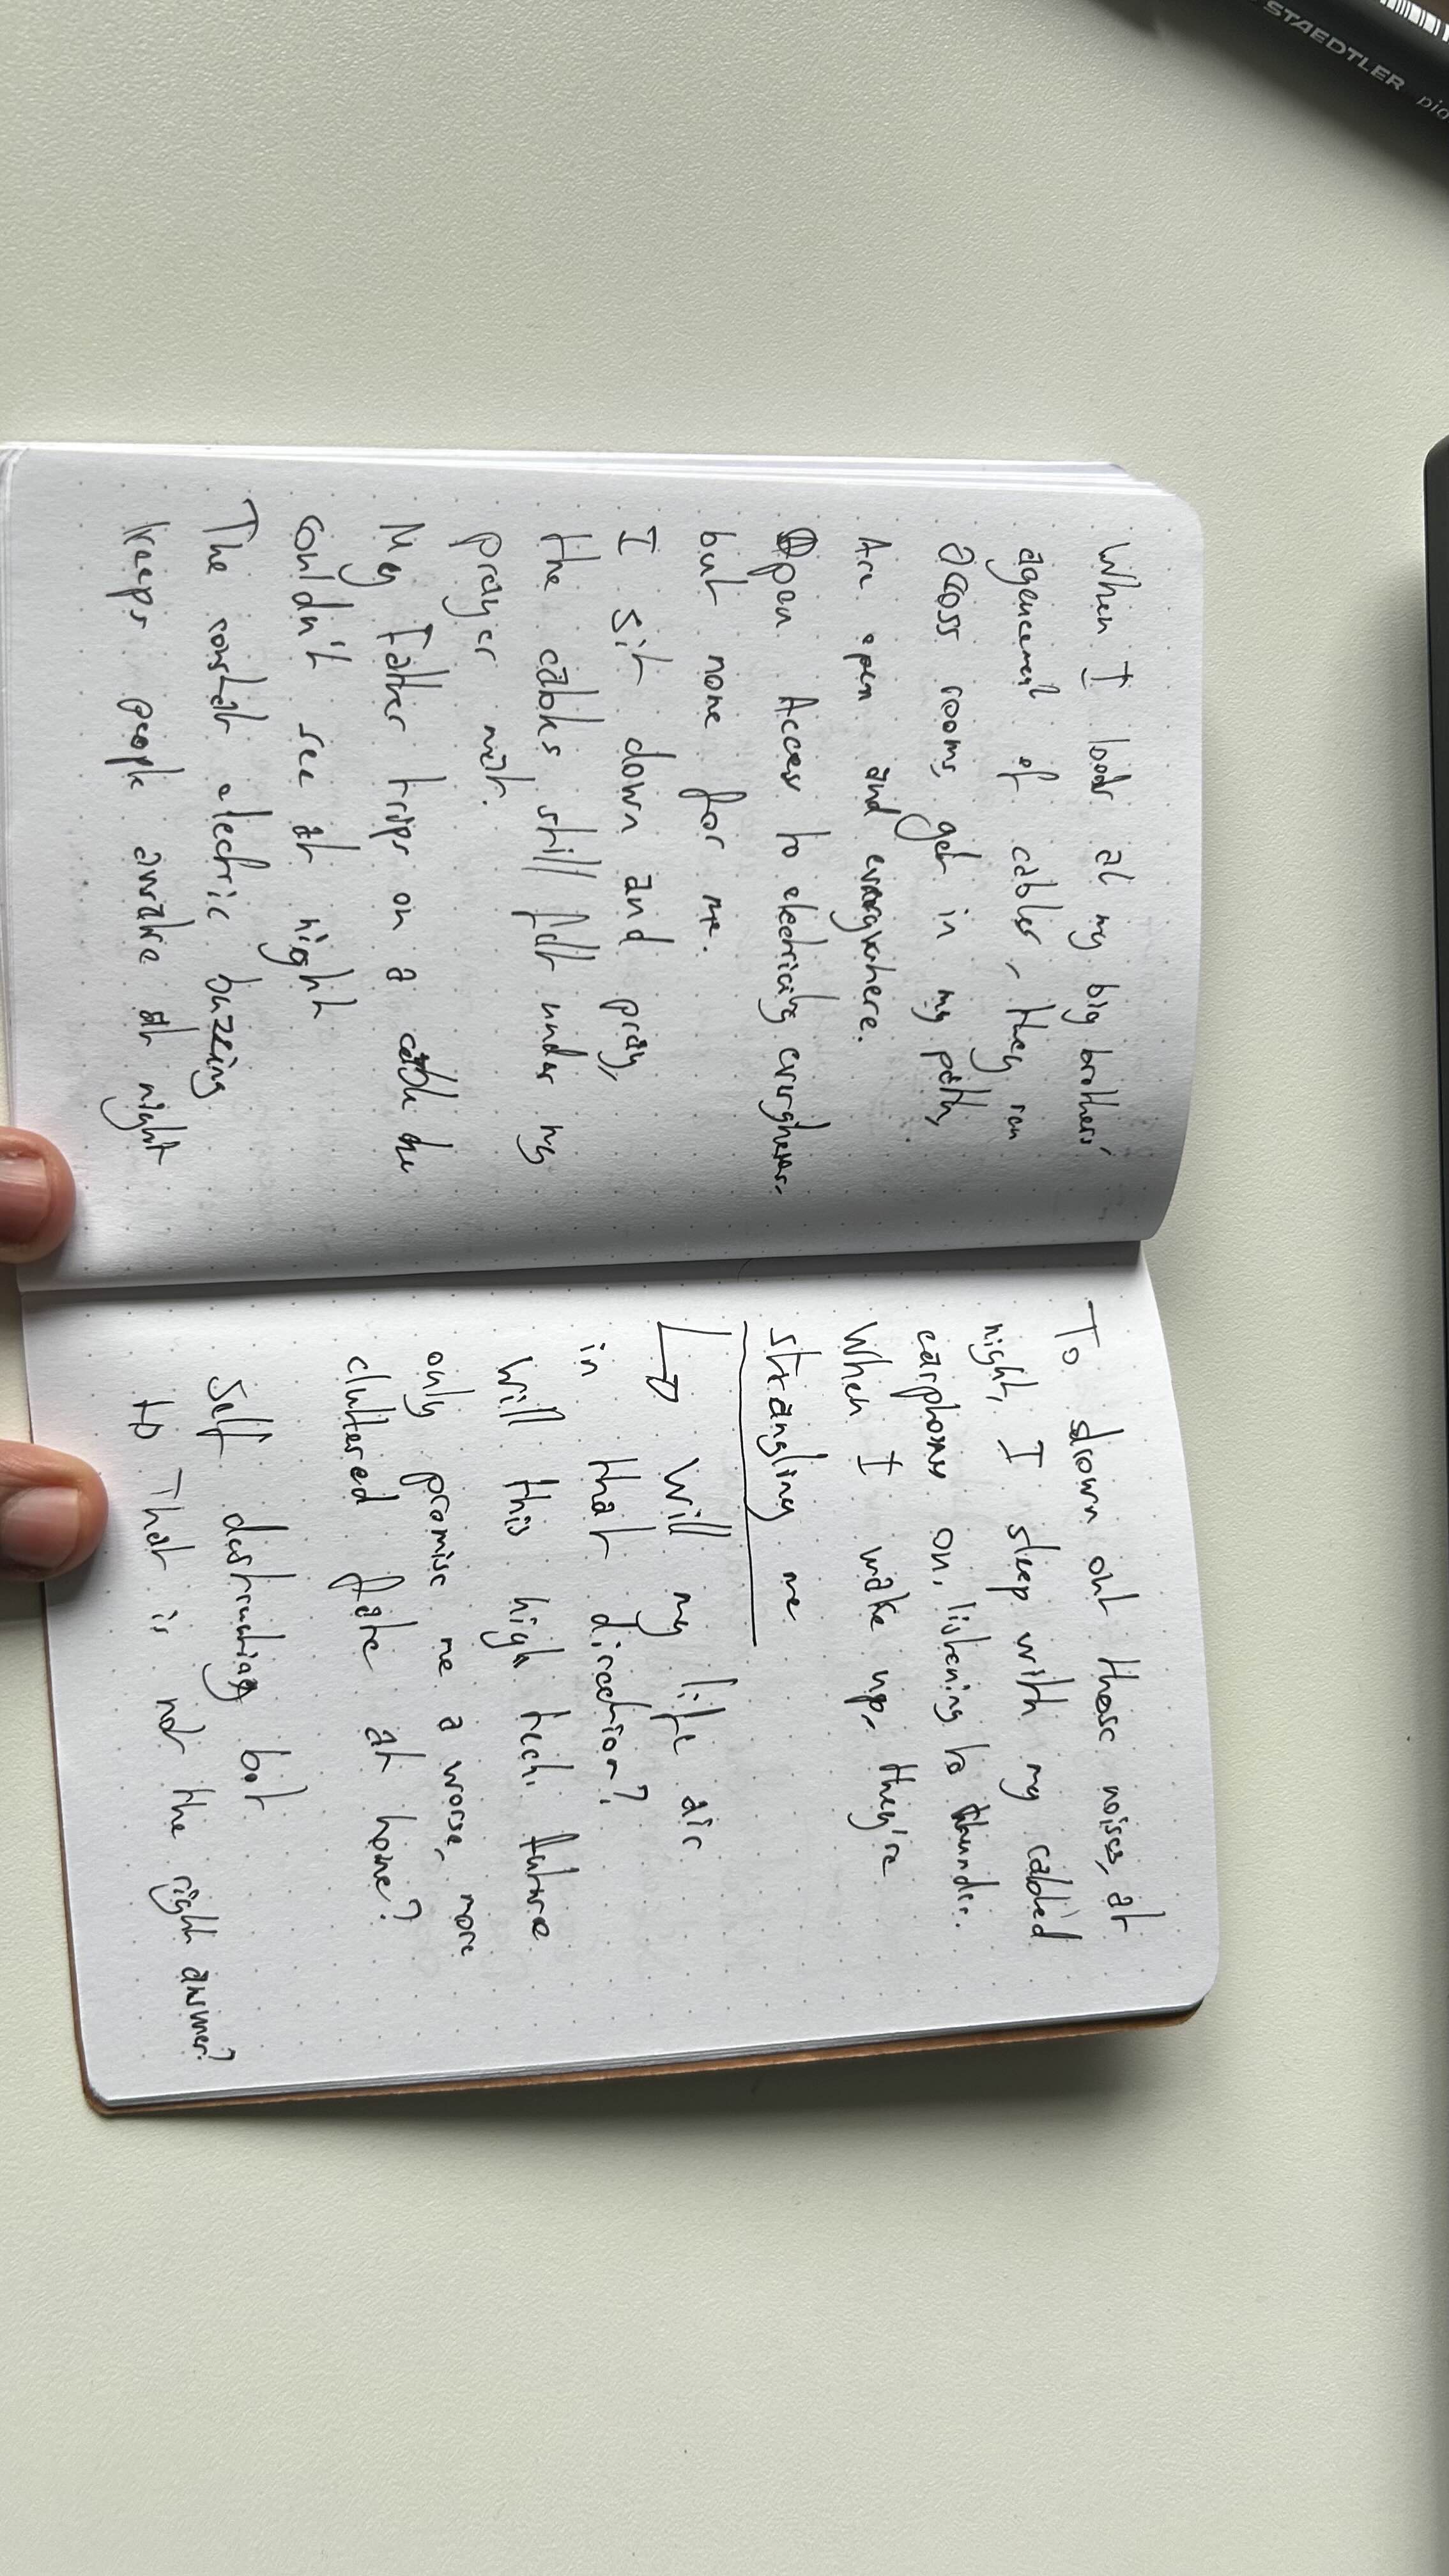 STAEDTLER
When I look at my big brothers'
agencement of cables, they run
across rooms, get in my path,
Are open and everywhere.
Open Access to electricity everywhere,
but none for me.
I sit down and pray,
the cables still felt under my
prayer mat.
My Father trips on a cable he
couldn't see at night
The constant electric buzzing
keeps people awake at night
To drown out those noises, at
night, I sleep with my cabled
earphones on, listening to thunder.
When I wake up, they're
strangling me
Will my life air
in that direction?
Will this high tech. future
only promise me a worse, more
cluttered fate at home?
Self destructing bot
to That is not the right answer?